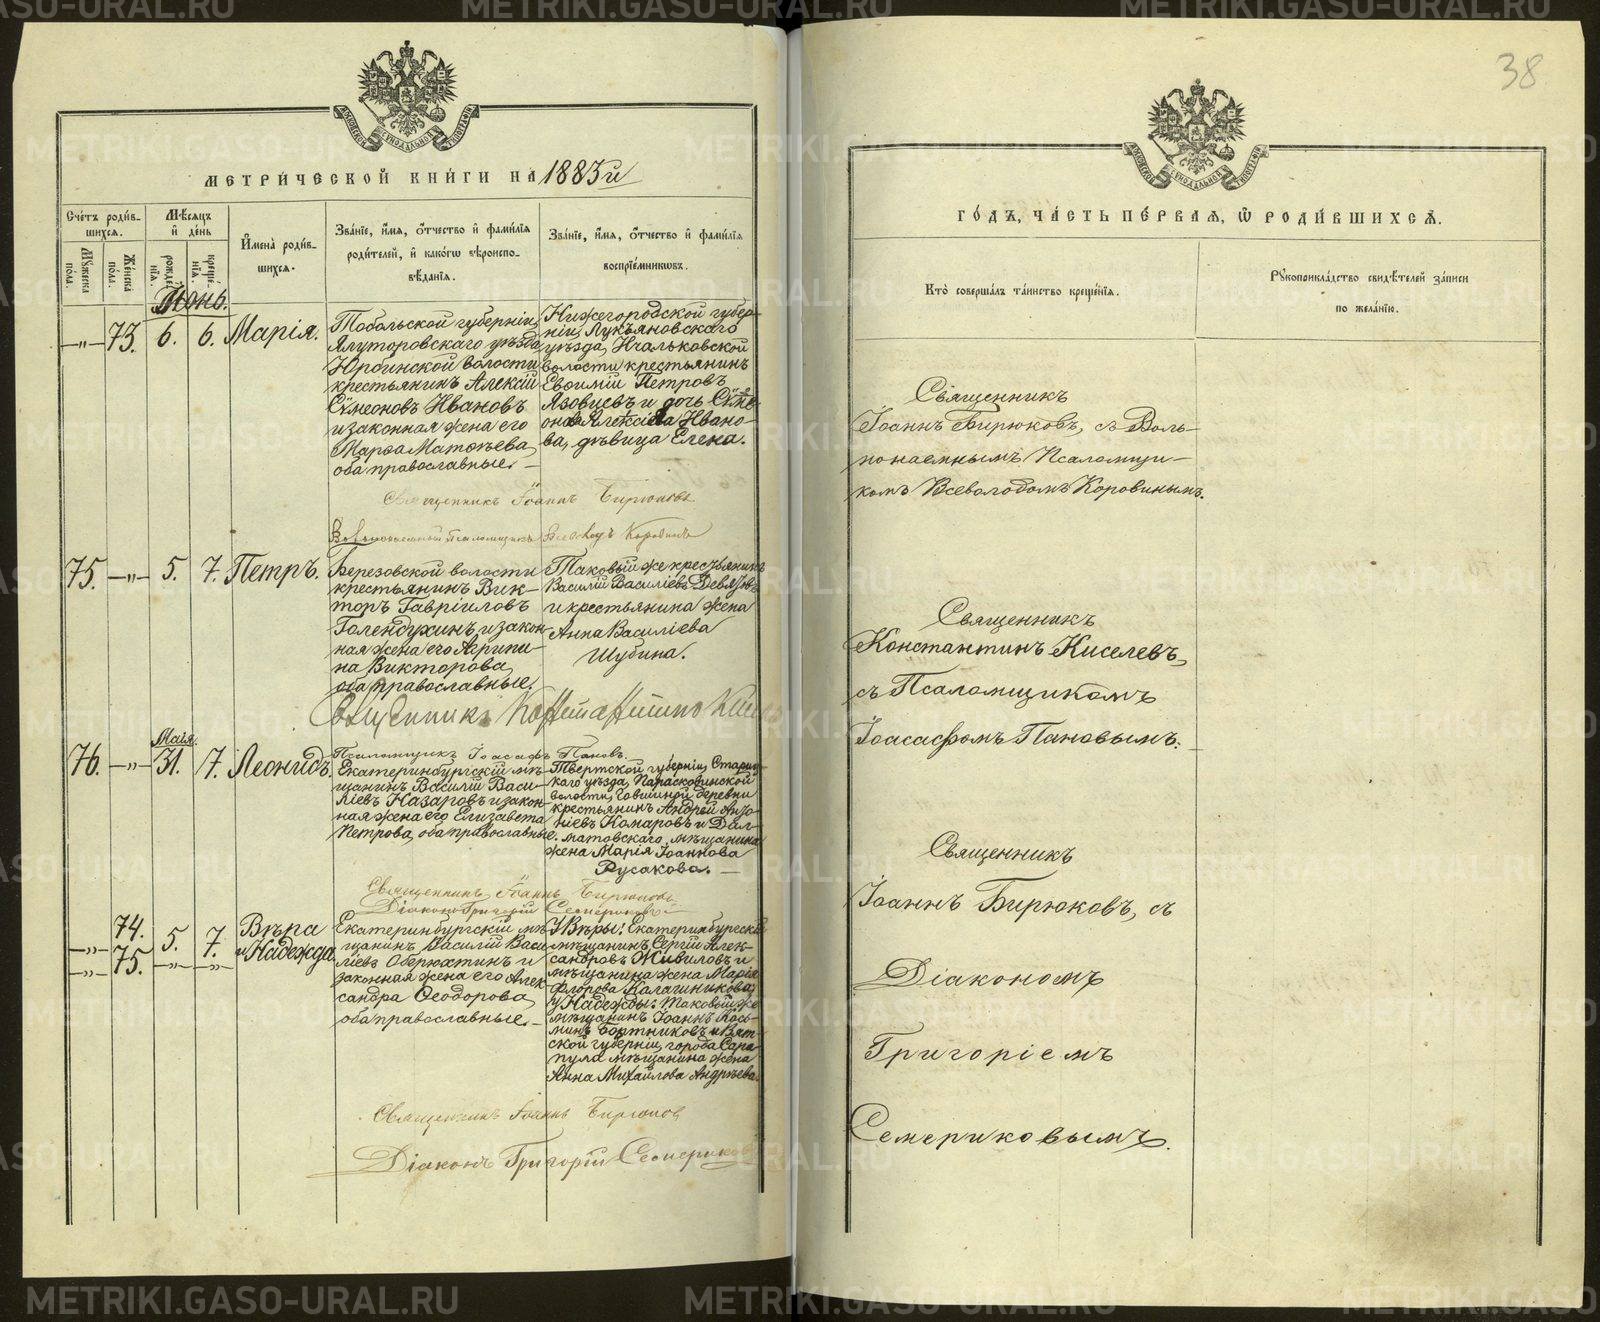 38
МЕТРИ́ЧЕСКОЙ КНИ́ГИ НА 1883й
Сче́тъ роди́в-
шихся.
Мужеска пола.
Же́нска по́ла.
Мѣ́сяцъ
и҆ де́нь
рожде́нія.
креще́нія.
И҆мена̀ роди́в-
шихся.
Зва́нїе, и҆́мя, ѻ҆́тчество и҆ фами́лїя
роди́телей, и҆ како́гѡ вѣроиспо-
вѣ́данїя.
Зва́нїе, и҆́мя, ѻ҆́тчество и҆ фами́лїя
воспрїе́мниковъ.
Іюнь.
—„— 73. 6. 6. Марія.
Тобольской губерніи,
Ялуторовскаго уѣзда
Юрбинской волости
крестьянинъ Алексій
Сѵмеоновъ Ивановъ
и законная жена его
Марѳа Матѳѣева,
оба православные.—
Нижегородской губер-
ніи, Лукьяновскаго
уѣзда, Ичалковской
волости крестьянинъ
Евѳимій Петровъ
Язовцевъ и дочь Сѵме-
она Алексѣева Ивано-
ва, дѣвица Елена.
Священникъ Іоаннъ Бирюковъ
Вольнонаемный Псаломщикъ Всеволодъ Коровинъ
75. —„— 5. 7. Петръ.
Березовской волости
крестьянинъ Вик-
торъ Гавріиловъ
Голендухинъ и закон-
ная жена его Агрипи-
на Викторова,
оба православные.
Таковый же крестьянинъ
Василій Василіевъ Девятовъ
и крестьянина жена
Анна Василіева
Шубина.
Священникъ Константинъ
Псаломщикъ Іоасафъ Пановъ.
Маія.
76. —„— 31. 7. Леонидъ.
Екатеринбургскій мѣ-
щанинъ Василій Васи-
ліевъ Назаровъ и закон-
ная жена его Елизавета
Петрова, оба православные.
Тверской губерніи, Стариц-
каго уѣзда,
волости, деревни
крестьянинъ Андрей
Комаровъ и Дал-
матовскаго мѣщанина
жена Марія Іоаннова
Русакова. —
Священникъ Іоаннъ Бирюковъ
Діаконъ Григорій Семериковъ
74. 5. 7. Вѣра
—„— 75. —„— —„— и Надежда.
Екатеринбургскій мѣ-
щанинъ Василій Васи-
ліевъ Оберюхтинъ и
законная жена его Алек-
сандра Ѳеодорова,
оба православные.—
У Вѣры: Екатеринбургскій
мѣщанинъ Сергій Алек-
сандровъ Живиловъ и
мѣщанина жена Марія
Флорова Калашникова,
у Надежды: таковый же
мѣщанинъ Іоаннъ Кось-
минъ Бортниковъ и Вят-
ской губерніи, города Сара-
пула мѣщанина жена
Анна Михайлова Андрѣева.
Священникъ Іоаннъ Бирюковъ
Діаконъ Григорій Семериковъ
ГО́ДЪ, ЧА́СТЬ ПЕ́РВАЯ, Ѽ РОДИ́ВШИХСЯ.
Кто̀ соверша́лъ та́инство креще́нїя.
Рукоприкла́дство свидѣ́телей за́писи
по жела́нїю.
Священникъ
Іоаннъ Бирюковъ, съ Воль-
нонаемнымъ Псаломщи-
комъ Всеволодомъ Коровинымъ.
Священникъ
Константинъ Киселевъ,
съ Псаломщикомъ
Іоасафомъ Пановымъ.
Священникъ
Іоаннъ Бирюковъ, съ
Діакономъ
Григоріемъ
Семериковымъ.
METRIKI.GASO-URAL.RU